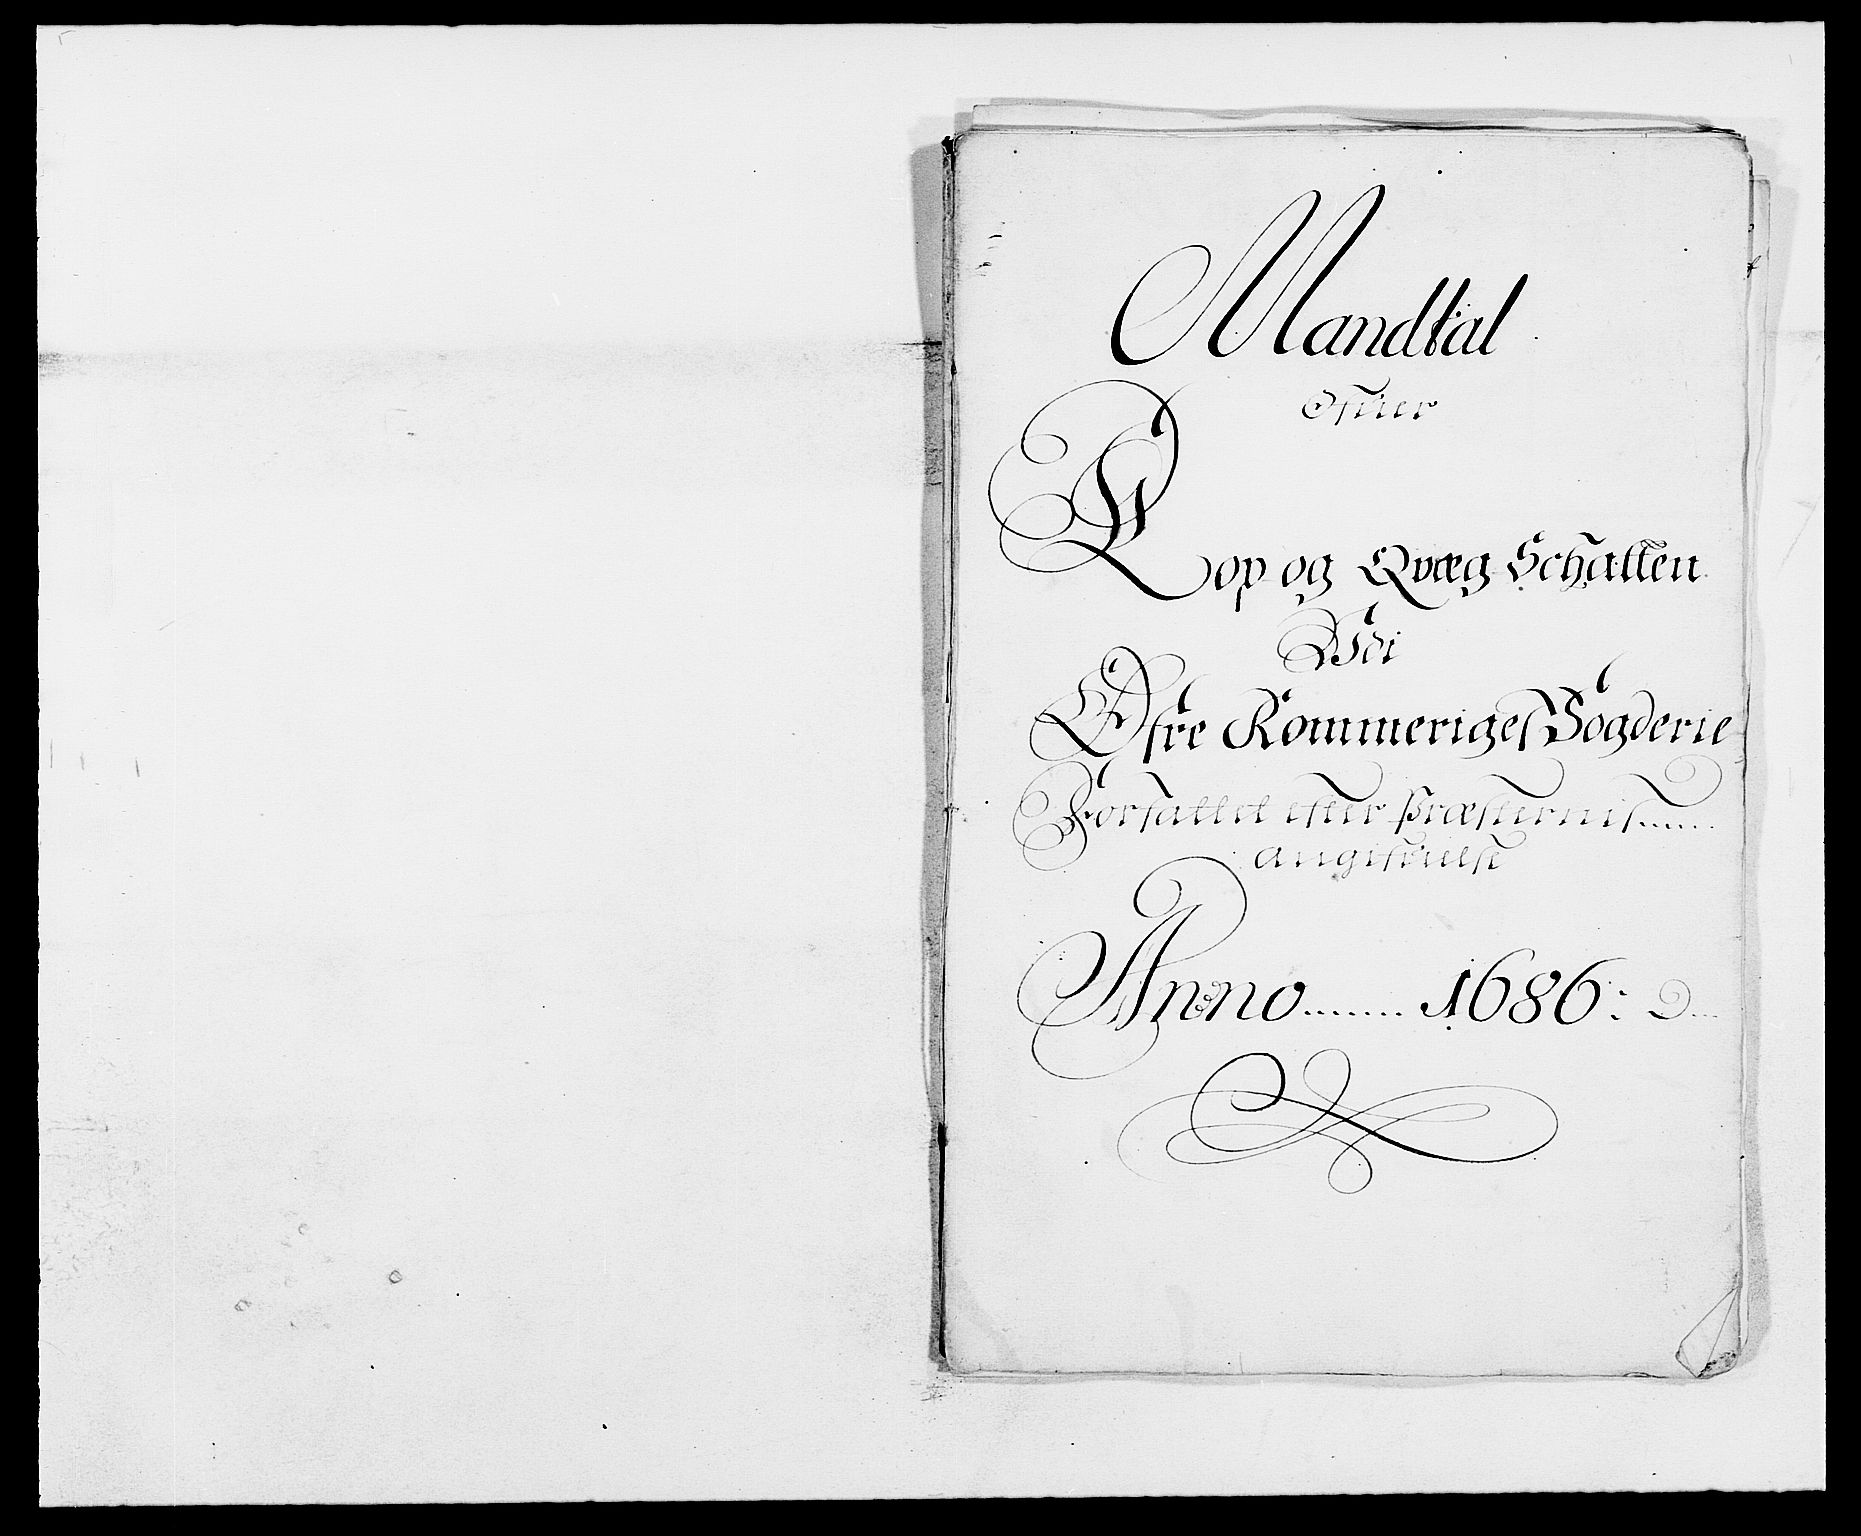 Mandtal
Ofver
Kop og Qvæg Schatten
Udi
Øfre Rommeriges Vogderie
Forfattet efter Præsternis
angifvelse
Anno 1686: